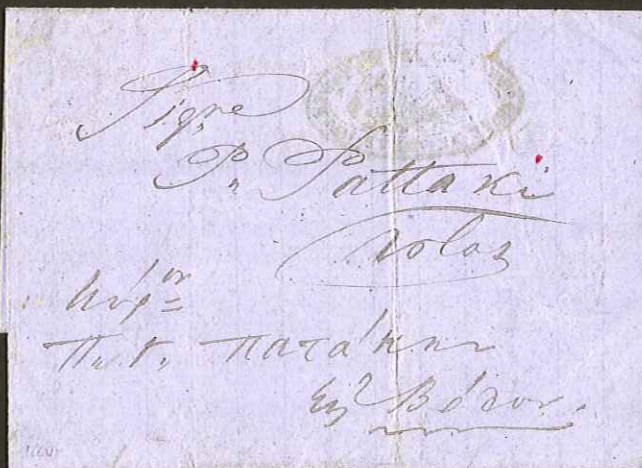 Sigre
P. Pattaki
Volos
Κύριον
Π. Γ. Πατάκην
Εἰς Βόλον.